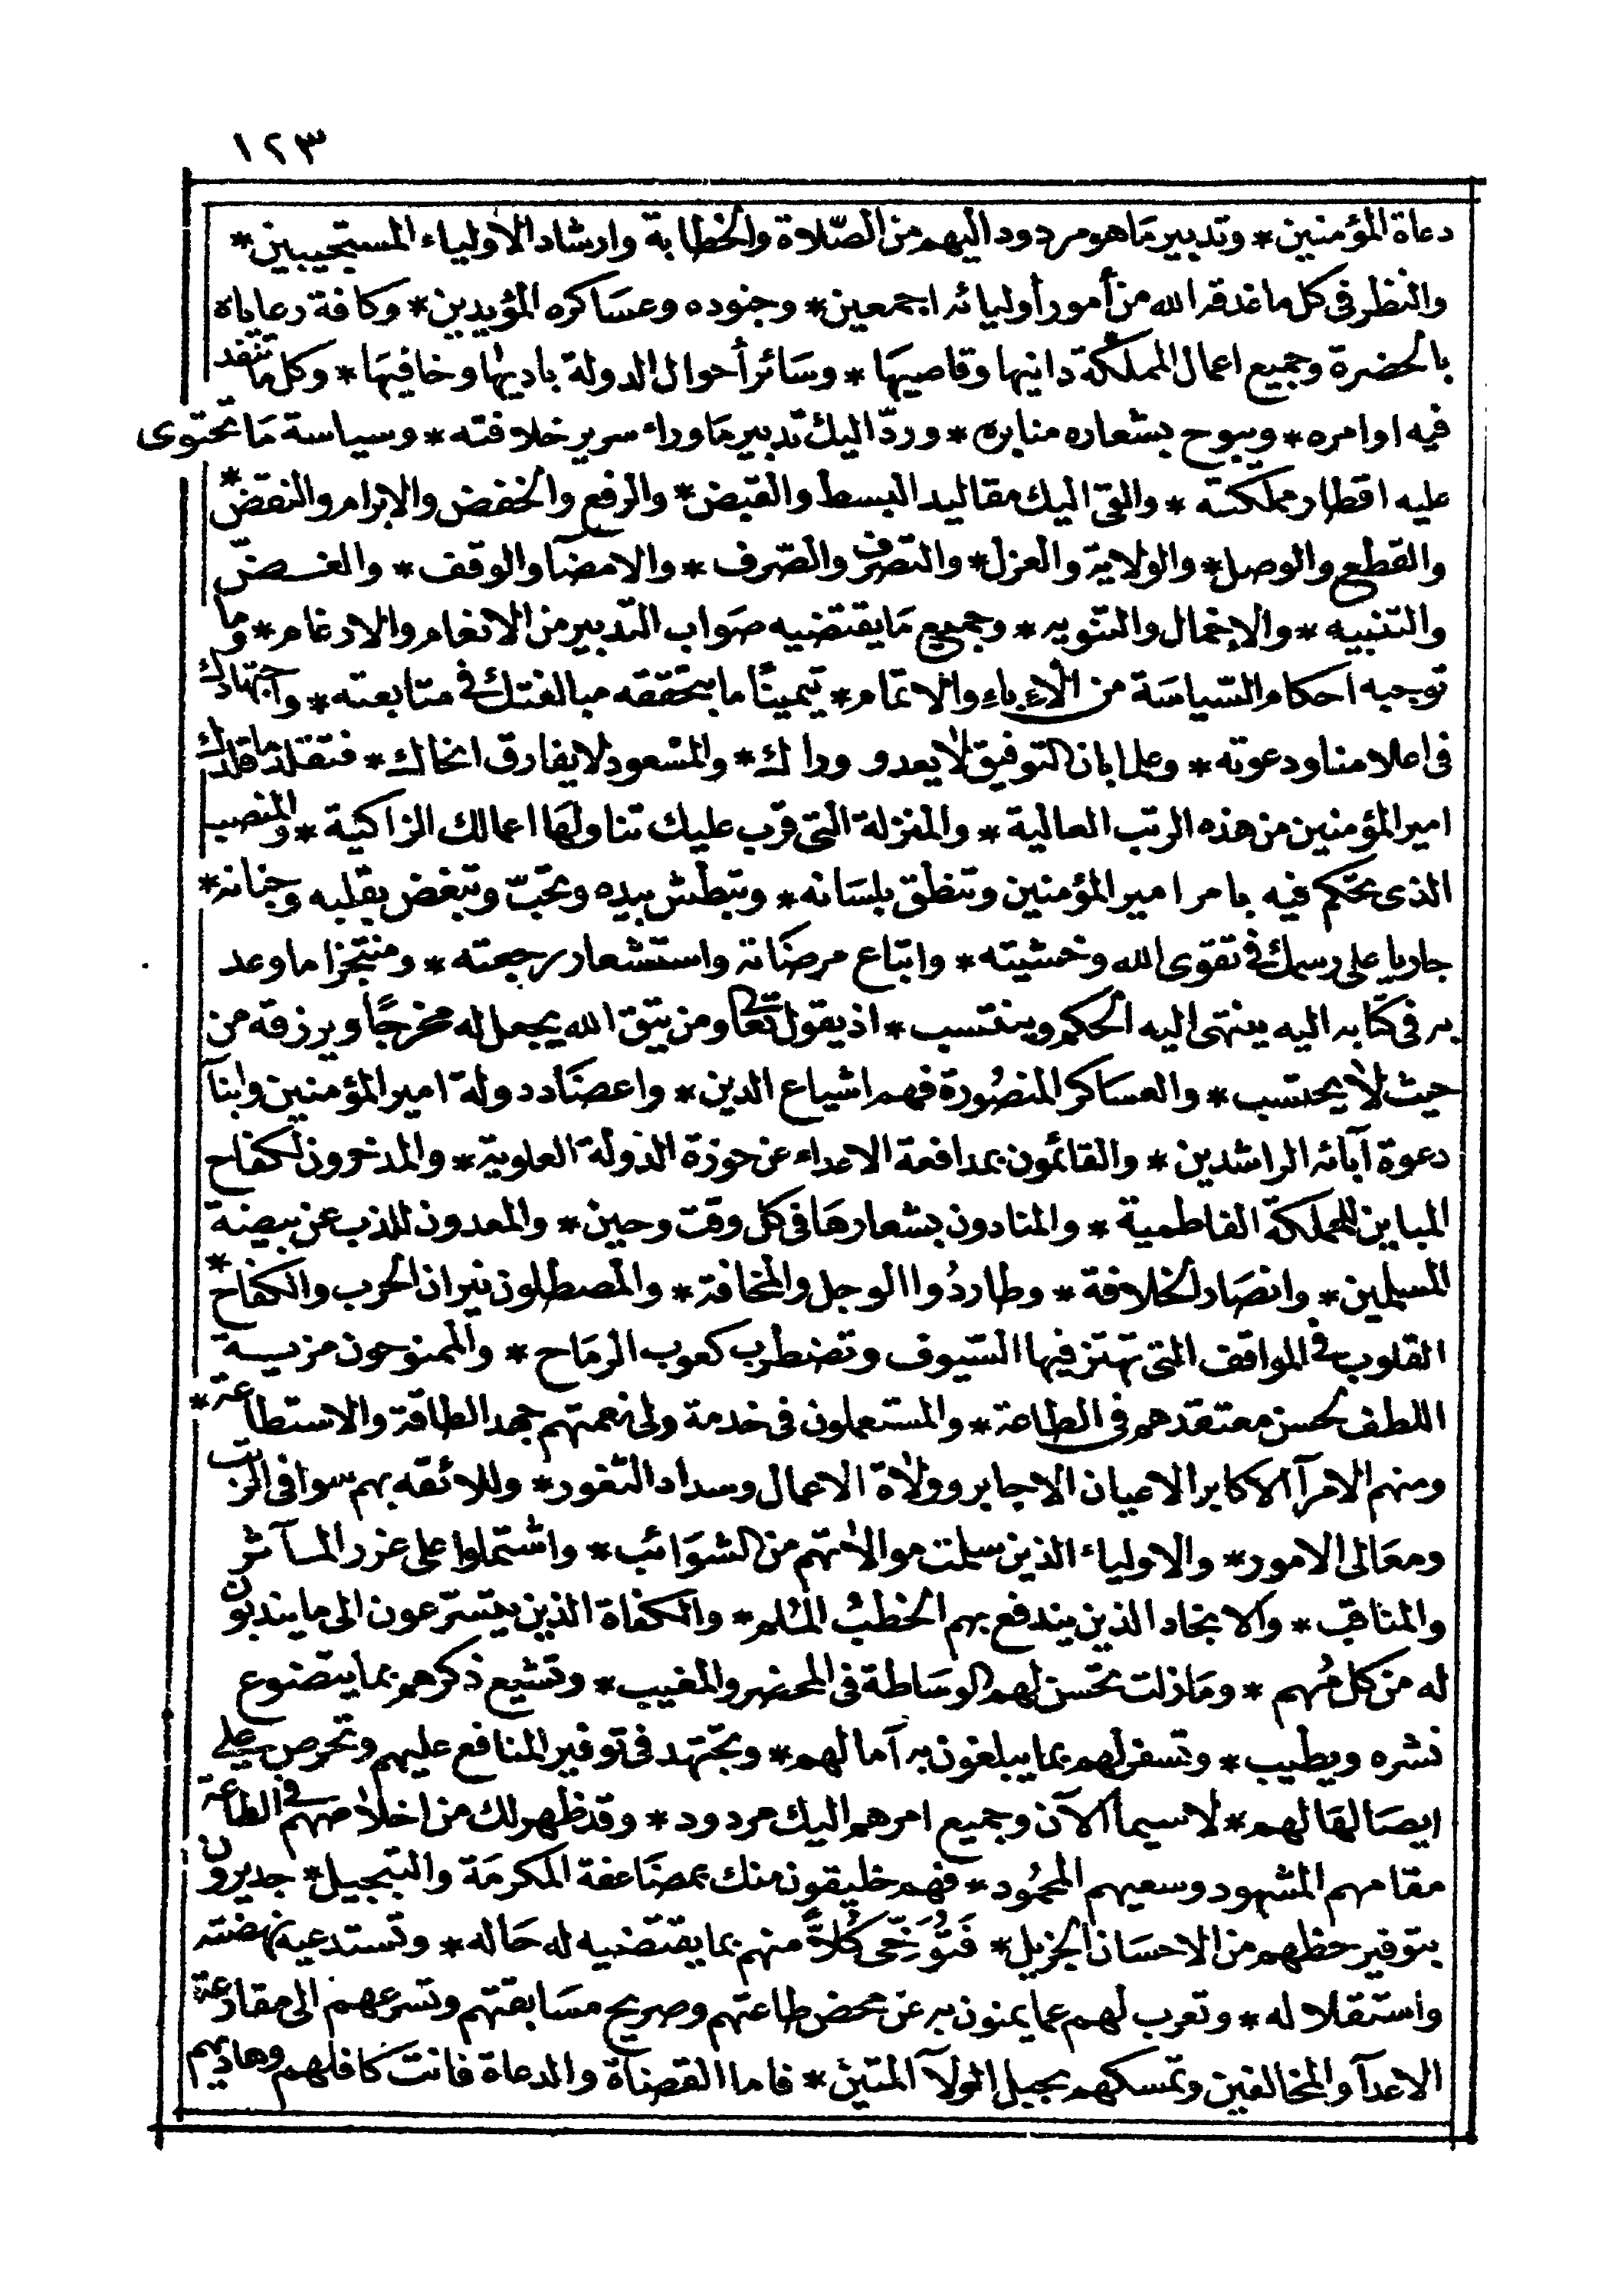 ١٢٣
دعاة المؤمنين * وتدبير ما هو مردود اليهم من الصّلاة والخطابة وارشاد الاولياء المستجيبين *
والنظر فى كل ما غدقه الله من أمور أوليائه اجمعين * وجنوده وعساكره المؤيدين * وكافة رعاياه
بالحضرة وجميع اعمال المملكة دانيها وقاصيها * وسائر أحوال الدولة باديها وخافيها * وكل ما تنفد
فيه اوامره * ويبوح بشعاره منابره * وردّ اليك تدبير ما وراء سرير خلافته * وسياسة ما تحتوى
عليه اقطار مملكته * والقى اليك مقاليد البسط والقبض * والرفع والخفض والابرام والنقض *
والقطع والوصل * والولاية والعزل * والتصرف والصّرف * والامضآ والوقف * والغض
والتنبيه * والإخمال والتنويه * وجميع ما يقتضيه صواب التدبير من الانعام والارغام * وما
توجبه احكام السّياسة من الاءباء والاتمام * تيمينًا ما يتحققه مبالغتك فى متابعته * واجتهادك
فى اعلا منار دعوته * وعلما بان التوفيق لا يعدو وراك * والسّعود لا يفارق انحاك * فتقلد ما قلدك
امير المؤمنين من هذه الرتب العالية * والمنزلة التى قرب عليك تناولها اعمالك الزاكية * والمنصب
الذى تحكم فيه بامر امير المؤمنين وتنطق بلسانه * وتبطش بيده وتحبّ وتبغض بقلبه وجنانه *
جاريا على رسمك فى تقوى الله وخشيته * واتباع مرضاته واستشعار رجعته * ومنتجزا ما وعد
به فى كتابه اليه ينتهى اليه الحكم وينتسب * اذ يقول تعا ومن يتق الله يجعل له مخرجًا ويرزقه من
حيث لا يحتسب * والعساكر المنصُورة فهم اشياع الدين * واعضاد دولة امير المؤمنين وابنآ
دعوة آبائه الراشدين * والقائمون بمدافعة الاعداء عن حوزة الدولة العلوية * والمدخرون لكفاح
المباين للمملكة الفاطمية * والمنادون بشعارها فى كل وقت وحين * والمعدون للذب عن بيضة
المسلمين * وانصار الخلافة * وطاردُوا الوجل والمخافة * والمصطلون نيران الحرب والكفاح *
القلوب فى المواقف التى تهتز فيها السّيوف وتضطرب كعوب الرماح * والممنوحون مزيـة
اللطف لحسن معتقدهم فى الطاعة * والمستعملون فى خدمة ولى نعمتهم جهد الطاقة والاستطاعة *
ومنهم الامرآ الاكابر الاعيان الاجابر وولاة الاعمال وسداد الثغور * وللائقه بهم سوافى الرتب
ومعالى الامور * والاولياء الذين سلمت موالاتهم من الشوائب * واشتملوا على غرر المـآثر
والمناقب * والانجاد الذين يندفع بهم الخطبُ المُلم * والكفاة الذين يتسرّعون الى ما يندبون
له من كل مُهم * وما زلت تحسن لهم الوساطة فى المحضر والمغيب * وتشيع ذكرهم بما يتضوع
نشره ويطيب * وتسفر لهم بما يبلغون به آمالهم * وتجتهد فى توفير المنافع عليهم وتحرص على
ايصالها لهم * لا سيما الآن وجميع امرهم اليك مردود * وقد ظهر لك من اخلاصهم فى الطاعة
مقامهم المشهود وسعيهم المحمُود * فهم خليقون منك بمضاعفة المكرمة والتبجيل * جديرون
بتوفير حظهم من الاحسان الجزيل * فَتُوَخَّى كُلاًّ منهم بما يقتضيه له حاله * وتستدعيه نهضته
واستقلاله * وتعرب لهم عما يمنون به عن محض طاعتهم وصريح مسابقتهم وتسرعهم الى مقارعة
الاعدآ والمخالفين وتمسكهم بحبل الولآ المتين * فاما القضاة والدعاة فانت كافلهم وهاديهم